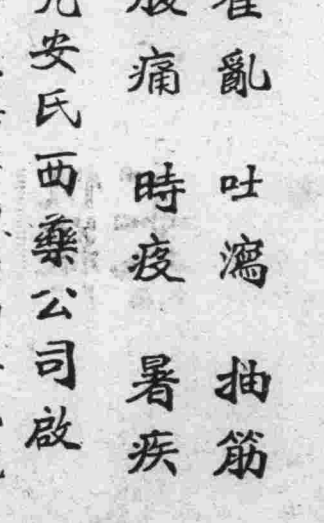 霍亂 吐瀉 抽筋
腹痛 時疫 暑疾
兜安氏西藥公司啟